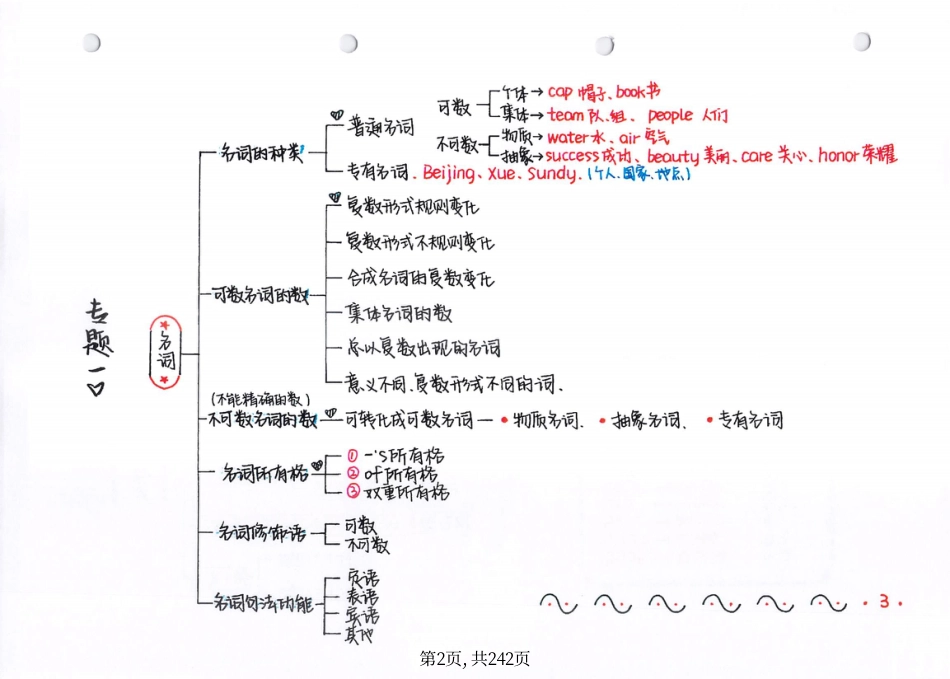 专题一
名词
名词的种类
普通名词
可数
个体→cap 帽子、book书
集体→team 队、组、people 人们
不可数
物质→water水、air 空气
抽象→success成功、beauty美丽、care 关心、honor荣耀
专有名词、Beijing、Xue、Sundy、(个人、国家、地点)
可数名词的数
复数形式规则变化
复数形式不规则变化
合成名词的复数变化
集体名词的数
总以复数出现的名词
意义不同、复数形式不同的词、
(不能精确的数)
不可数名词的数
可转化成可数名词—•物质名词、•抽象名词、•专有名词
名词所有格
① -'s所有格
② of所有格
③ 双重所有格
名词修饰语
可数
不可数
名词句法功能
定语
表语
宾语
其他
·3·
第2页, 共242页